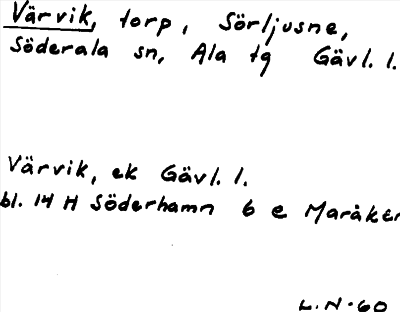 Värvik, torp, Sörljusne,
Söderala sn, Ala tg Gävl. l.
Värvik, ek Gävl. l.
bl. 14 H Söderhamn 6 e Maråker
L.N-60